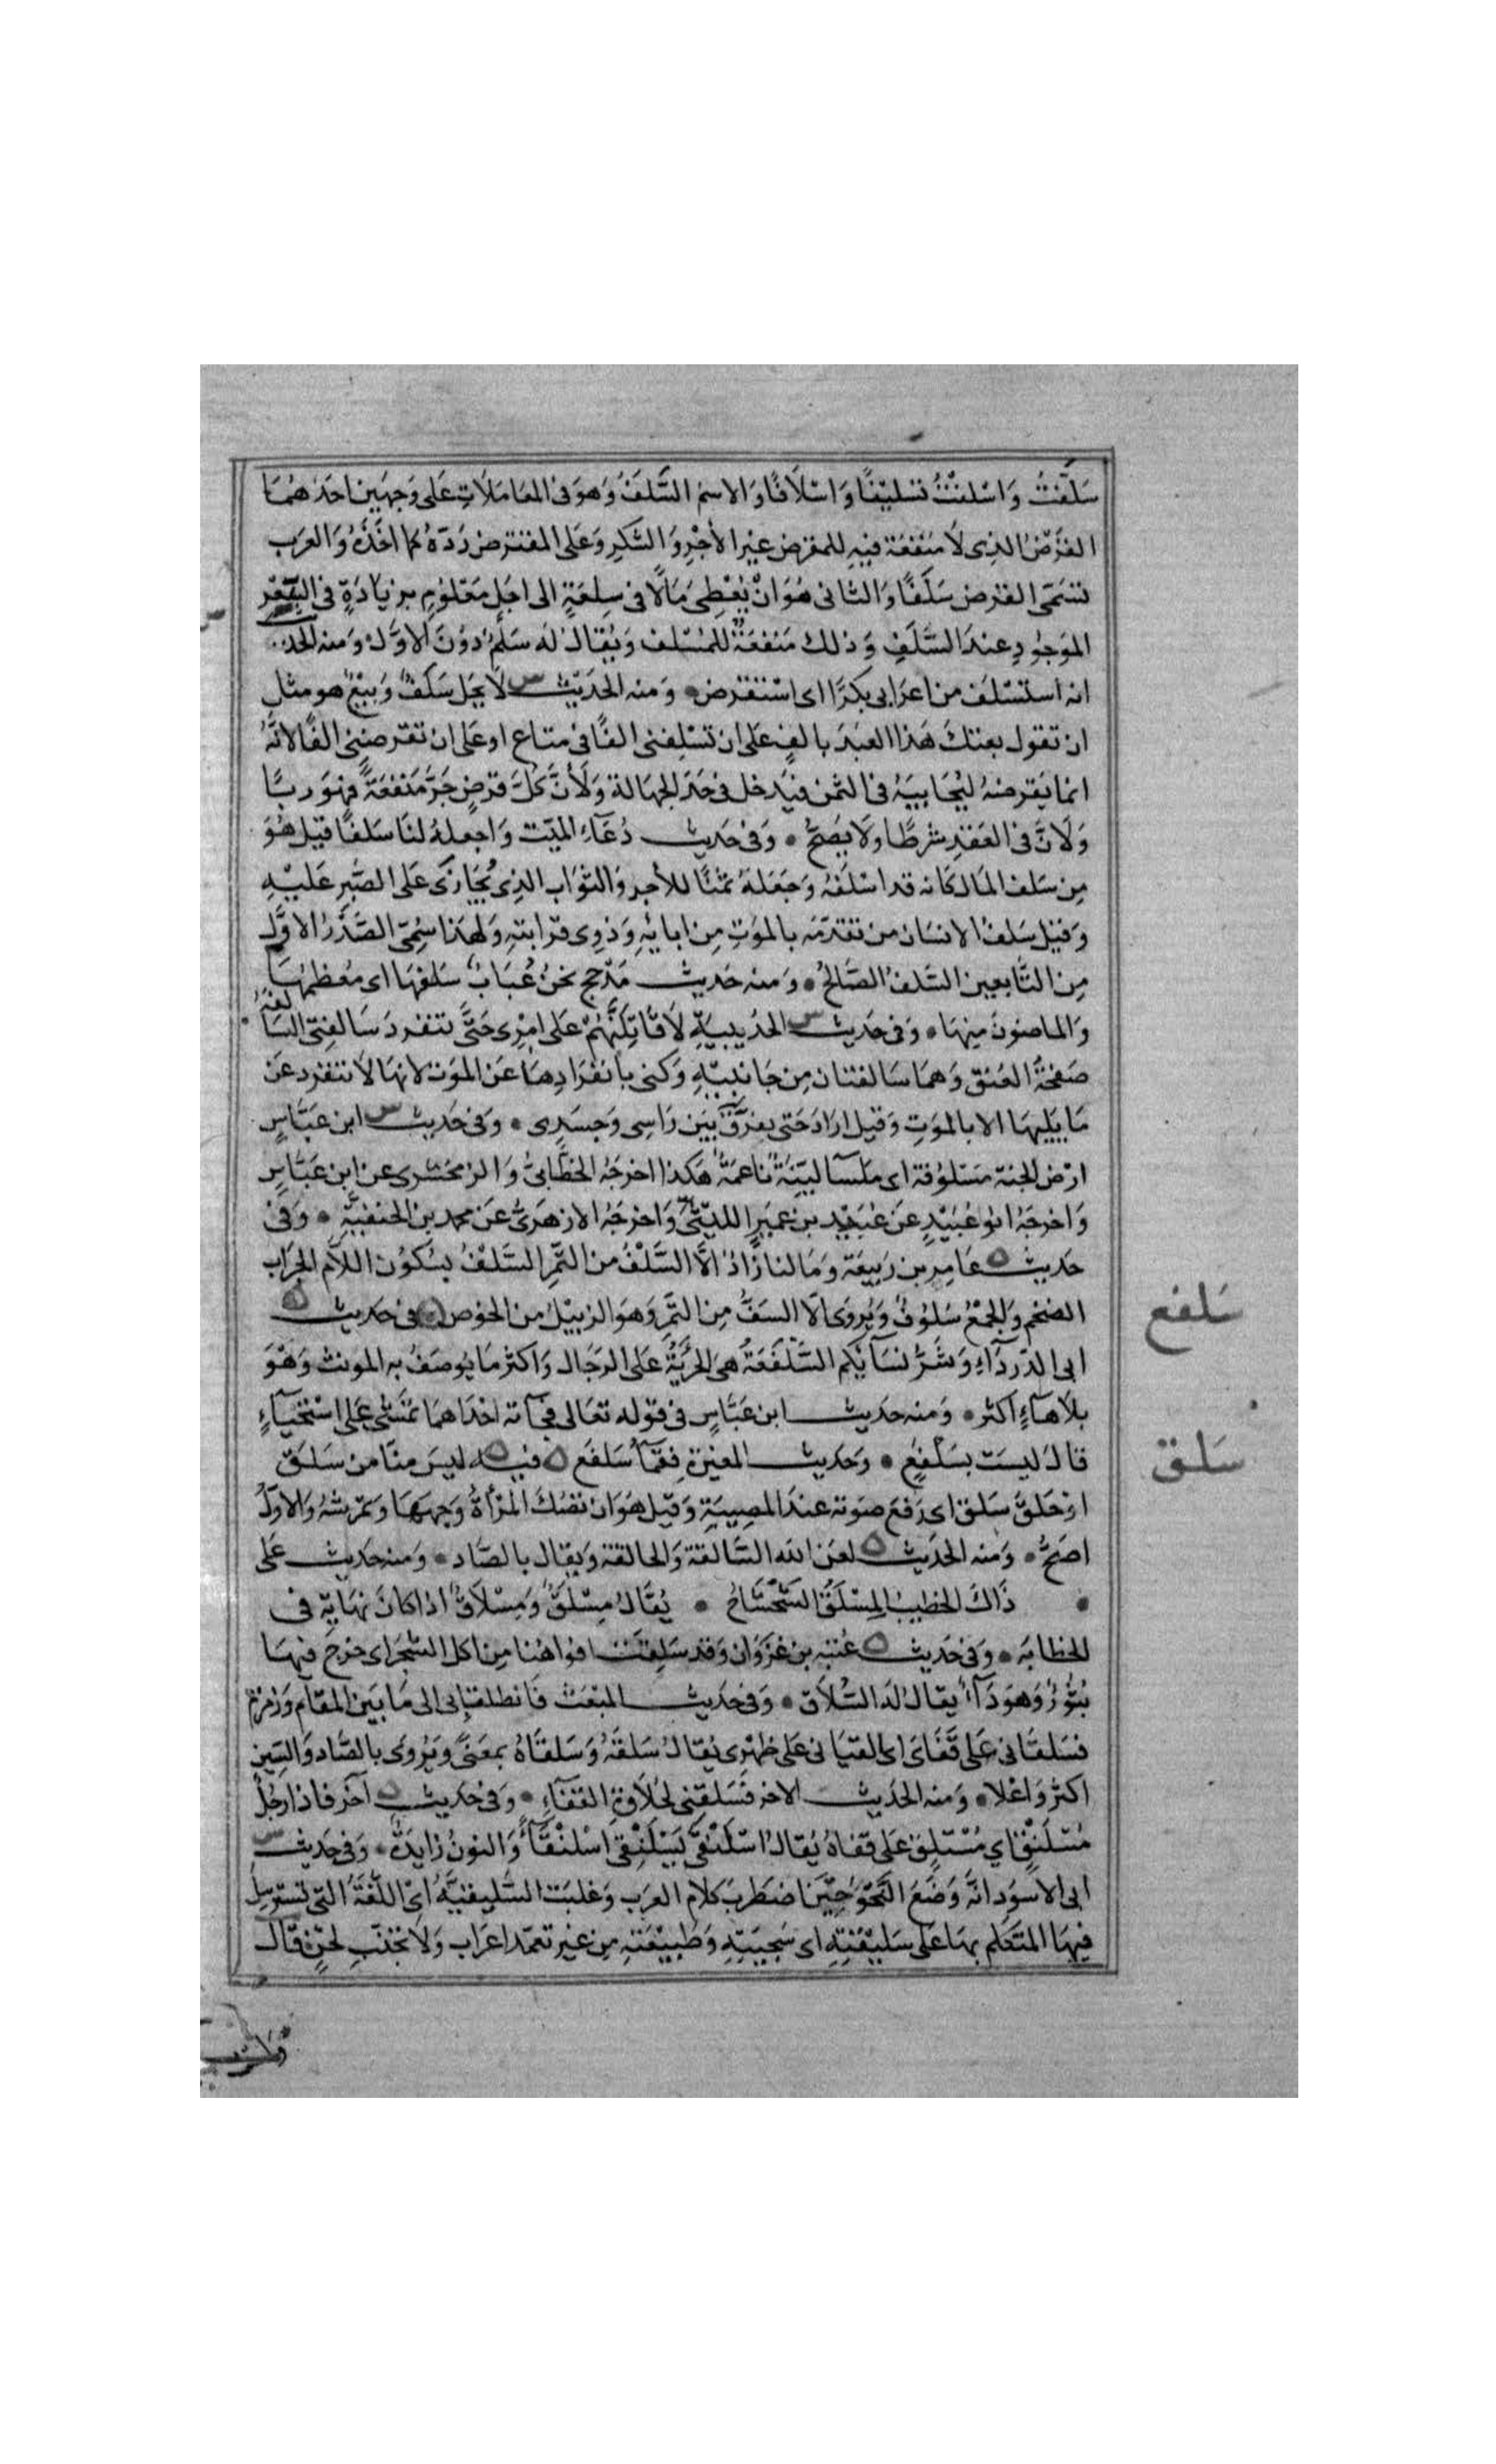 سَلَّفْتُ وَاَسْلَفْتُ تَسْلِيْفًا وَاِسْلَافًا وَالاسمُ السَّلَفُ وَهوَ فى المعَامَلَاتِ عَلى وَجهَين احَدهُمَا
القَرْضُ الذِى لَا مَنفَعَة فيهِ للمقرض غيْر الأجْرِ وَالشكرِ وَعَلى المقترض رَدّهُ كما اخَذهُ وَالعَرَب
تسَمى القرض سَلَفًا وَالثانى هُوَ انْ يُعْطِىَ مَالًا فى سِلعَةٍ الى اجَلٍ مَعلوُمٍ بزيَادَةٍ فى السِّعْرِ
الموَجُودِ عندَ السَّلَفِ وَذلك مَنفعَةٌ للمُسْلف وَيُقالُ لَه سَلَمٌ دوُنَ الاوَّل وَمنه الحد
انه استسْلَفَ من اعرَابى بكرًا اى اسْتَقْرَض وَمنه الحَدَيْث لَا يحَل سَلَفٌ وَبَيْعٌ هو مثل
ان تقول بعتكَ هَذا العبَدَ بالفٍ عَلى ان تسْلِفنى الفًا فى متاع او عَلى ان تقرضنى الفًا لانَّهُ
انما يَقرضهُ ليُحَابيَهُ فى الثمن فيَدخل فى حَدّ الجهَالة وَلأنَّ كلَّ قرضٍ جَرَّ مَنفعَةً فهَو ربًا
وَلَانَّ فى العَقدِ شرطًا وَلَا يصَحُّ وَفى حَديث دُعَآءِ الميّت وَاجعلهُ لنَا سَلفًا قيل هُوَ
مِن سَلف المَال كانه قد اسْلَفهُ وَجَعَلهُ ثمنًا للأجرِ وَالثوَاب الذِى يُجَازَى عَلى الصَّبرِ عَليْهِ
وَقيْل سَلفُ الانسَان من تقدّمَه بالموَتِ مِن ابائهِ وَذوِى قرَابتهِ وَلهَذا سُمِّىَ الصَّدرُ الاوَّل
مِن التَّابعين السَّلفُ الصَّالحُ وَمنه حَديث مَذْحج نحنُ عُبَابُ سَلفهَا اى مُعظمهَا
وَالماضونَ مِنهَا وَفى حَديث الحدَيبيَةِ لَاقَاتِلَنَّهُمْ عَلى امْرِى حَتَّى تنفردَ سَالفتى السَالفَةُ
صَفحَةُ العنق وَهمَا سَالفتان مِن جَانِبَيْهِ وَكنى بانفرَادِهَا عَن الموَت لانهَا لَا تنفرد عَن
مَا يَليهَا الا بالموَتِ وَقيل ارَادَ حَتى يفرَّقَ بَيَن رَاسِى وَجَسَدِى وَفى حَديث ابن عَبَّاسٍ
ارْض الجنة مَسْلوُفة اى ملسَآ ليّنَةٌ ناعمَةٌ هَكذا اخرجَهُ الخطَّابىُّ وَالزمخشرى عن ابن عَبَّاسٍ
وَاخرجَهُ ابوُ عُبَيْدٍ عَن عُبَيْد بن عمَيرٍ الليْثىّ وَاخرجَهُ الازهَرىُّ عَن محمد بن الحنفيَّةِ وَفى
حَديث عَامِر بن رَبيعَة وَمَا لنا زَادٌ الَّا السَّلْفُ من التَّمرِ السَّلْفُ بسُكوُن اللَّام الجرَاب
الضخم وَالجمْعُ سُلوُفٌ وَيُروَى الَّا السَفُّ مِن التَّمرِ وَهوَ الزبيْلُ من الخوُص فى حَديث
ابى الدّردَآءِ وَشَرُّ نسَآئكم السَّلْفَعَةُ هىَ الجريَّةُ عَلى الرجَال وَاكثر مَا يوُصَفُ به المونث وَهْوَ
بلَا هَآءٍ اكثر وَمنه حَديث ابن عَبَّاسٍ فى قوله تعَالى فجآته احْدَاهمَا تمشى عَلى اسْتحيَآءٍ
قالَ ليسَت بسَلْفَعٍ وَحَديث المغيرَة فقمَآ سَلفَع فيه ليسَ منَّا من سَلَقَ
اوْ حَلقَ سَلق اى رَفعَ صَوته عندَ المصِيبَةِ وَقيل هوَ ان تصُكَّ المَرْأةُ وَجههَا وَتمرشهُ وَالاوَّلُ
اصَحُّ وَمنه الحدَيث لعَن الله السَّالقة وَالحالقة وَيقال بالصَّاد وَمنه حَديث عَلى
ذَاكَ الخطيبُ المِسْلَقُ الشَّحْشَاحُ يُقَالُ مِسْلَقٌ وَمِسْلَاقٌ اذا كانَ نهَايَةً فى
الخطابَه وَفى حَديث عُتبَه بن غزوَان وَقد سَلقَت افوَاهُنا مِن اكل الشجَر اى خرَج فيهَا
بُثوُرٌ وَهوَ دَآءٌ يقالُ لهُ السُّلَاق وَفى حَديث المبْعَث فَانطلقا بى الى مَا بَين المقَام وَزمزم
فسَلقَانى عَلى قَفَاىَ اى القيَانى عَلى ظهْرى يُقالُ سَلقَهُ وَسَلقَاهُ بمعَنًى وَيُروَى بالصَّاد وَالسّين
اكثرُ وَاعْلا وَمنه الحدَيث الاخر فسَلقنى لحُلَاوَة القفَآءِ وَفى حَديث آخر فاذا رجُلٌ
مُسْلَنْقٍ اى مُسْتلقٍ عَلى قفاهُ يُقالُ اسْلَنْقَى يَسْلَنْقِى اسْلنْقَآءً وَالنونُ زايدَةٌ وَفى حَديث
ابى الاَسوَد انَّهُ وَضَعَ النَّحْوَ حِيَن اضطرَبَ كلَام العَرَب وَغلبَت السَّليقيَّهُ اىْ اللُّغَةُ التى يَسترسلُ
فيهَا المتكلم بهَا عَلى سَليْقتِهِ اى سَجيَّتِهِ وَطَبيْعَتهِ مِن غيْر تعمّد اعرَاب وَلَا تجنّب لحْنٍ قالَ
سَلفع
سَلق